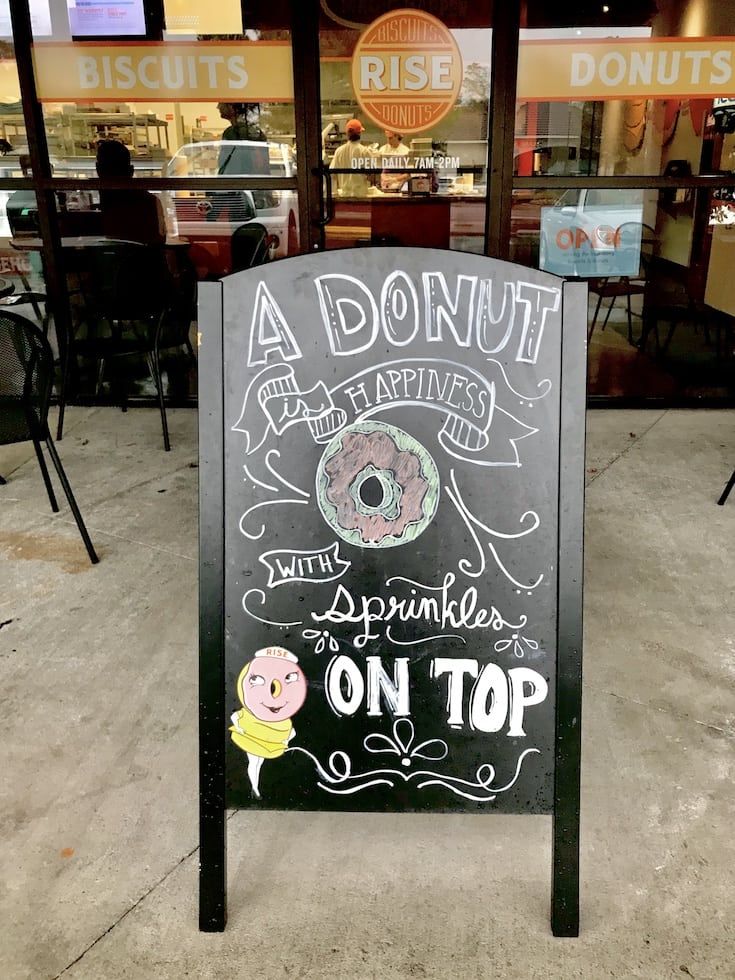 BISCUITS
BISCUITS
RISE
DONUTS
DONUTS
OPEN DAILY 7AM-2PM
OPEN
A DONUT
is HAPPINESS
WITH
sprinkles
RISE
ON TOP